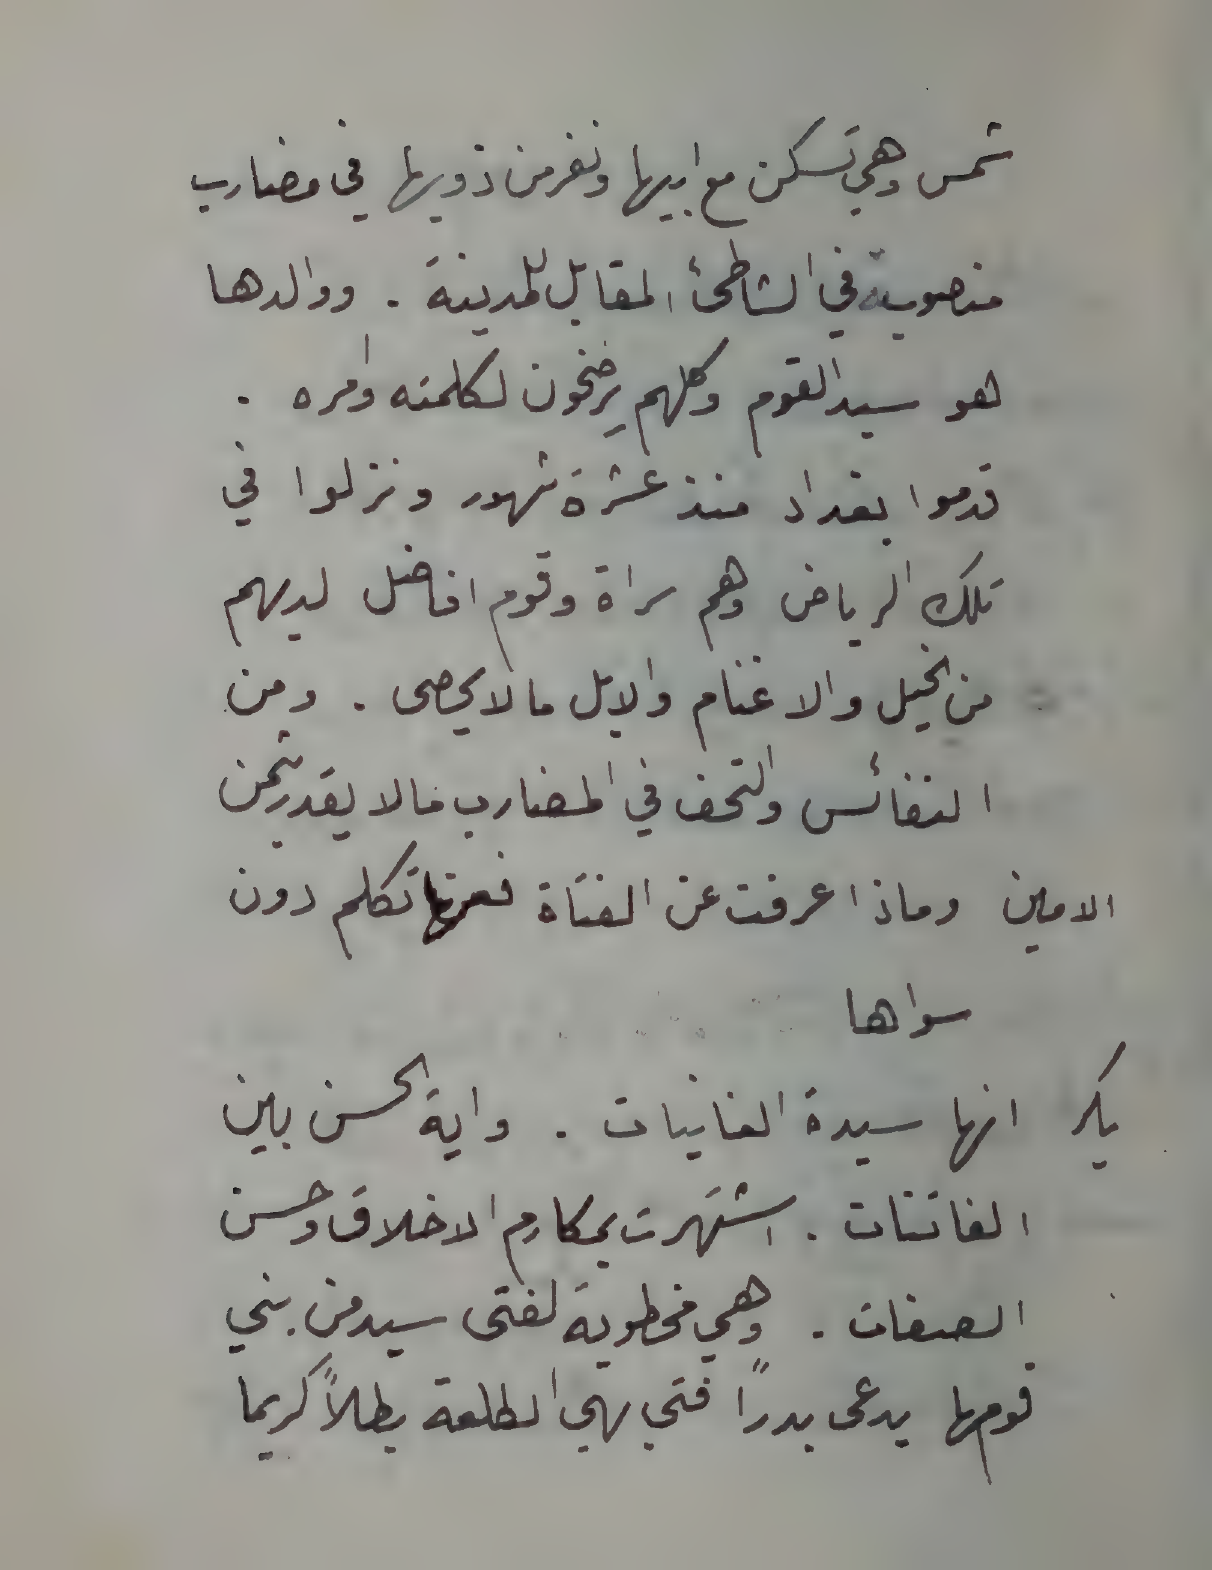 شمس وهي تسكن مع ابيها ونفر من ذويها في مضارب
منصوبة في الشاطئ المقابل للمدينة . ووالدها
هو سيد القوم وكلهم يرضخون لكلمته وامره .
قدموا بغداد منذ عشرة شهور ونزلوا في
تلك الرياض وهم سراة وقوم افاضل لديهم
من الخيل والاغنام والابل ما لا يحصى . ومن
النفائس والتحف في المضارب مالا يقدر بثمن
الامين وماذا عرفت عن الفتاة فعنها تكلم دون
سواها
بكر انها سيدة الغانيات . واية الحسن بين
الفاتنات . اشتهرت بمكارم الاخلاق وحسن
الصفات . وهي مخطوبة لفتى سيد من بني
قومها يدعى بدراً فتى بهي الطلعة بطلاً كريما